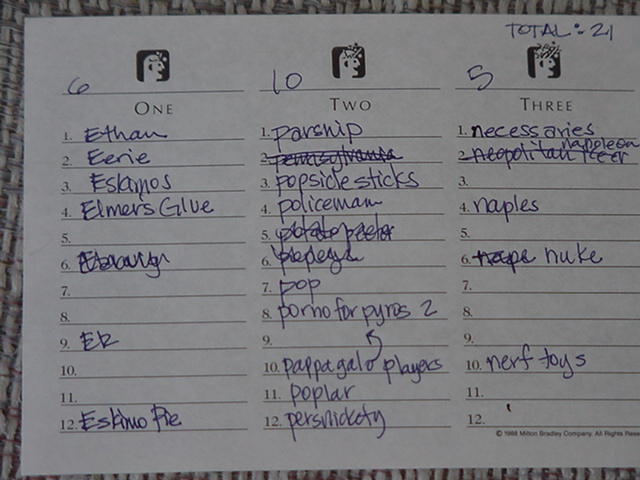 TOTAL: 21
6 10 5
ONE TWO THREE
1. Ethan
2. Eerie
3. Eskimos
4. Elmers Glue
5.
6.
7.
8.
9. ER
10.
11.
12. Eskimo Pie
1. parsnip
2. pennsylvania
3. popsicle sticks
4. policeman
5. potato peeler
6. popeye
7. pop
8. porno for pyros 2
9.
10. pappagalo players
11. poplar
12. persnickety
1. necessaries
napoleon
2. neopolitan
3.
4. naples
5.
6. nuke
7.
8.
9.
10. nerf toys
11.
12.
© 1988 Milton Bradley Company. All Rights Rese